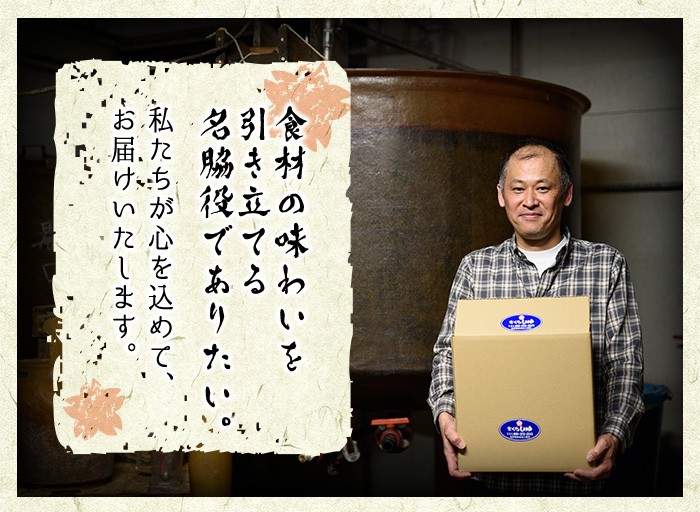 食材の味わいを
引き立てる
名脇役でありたい。
私たちが心を込めて、
お届けいたします。
さくらしょうゆ